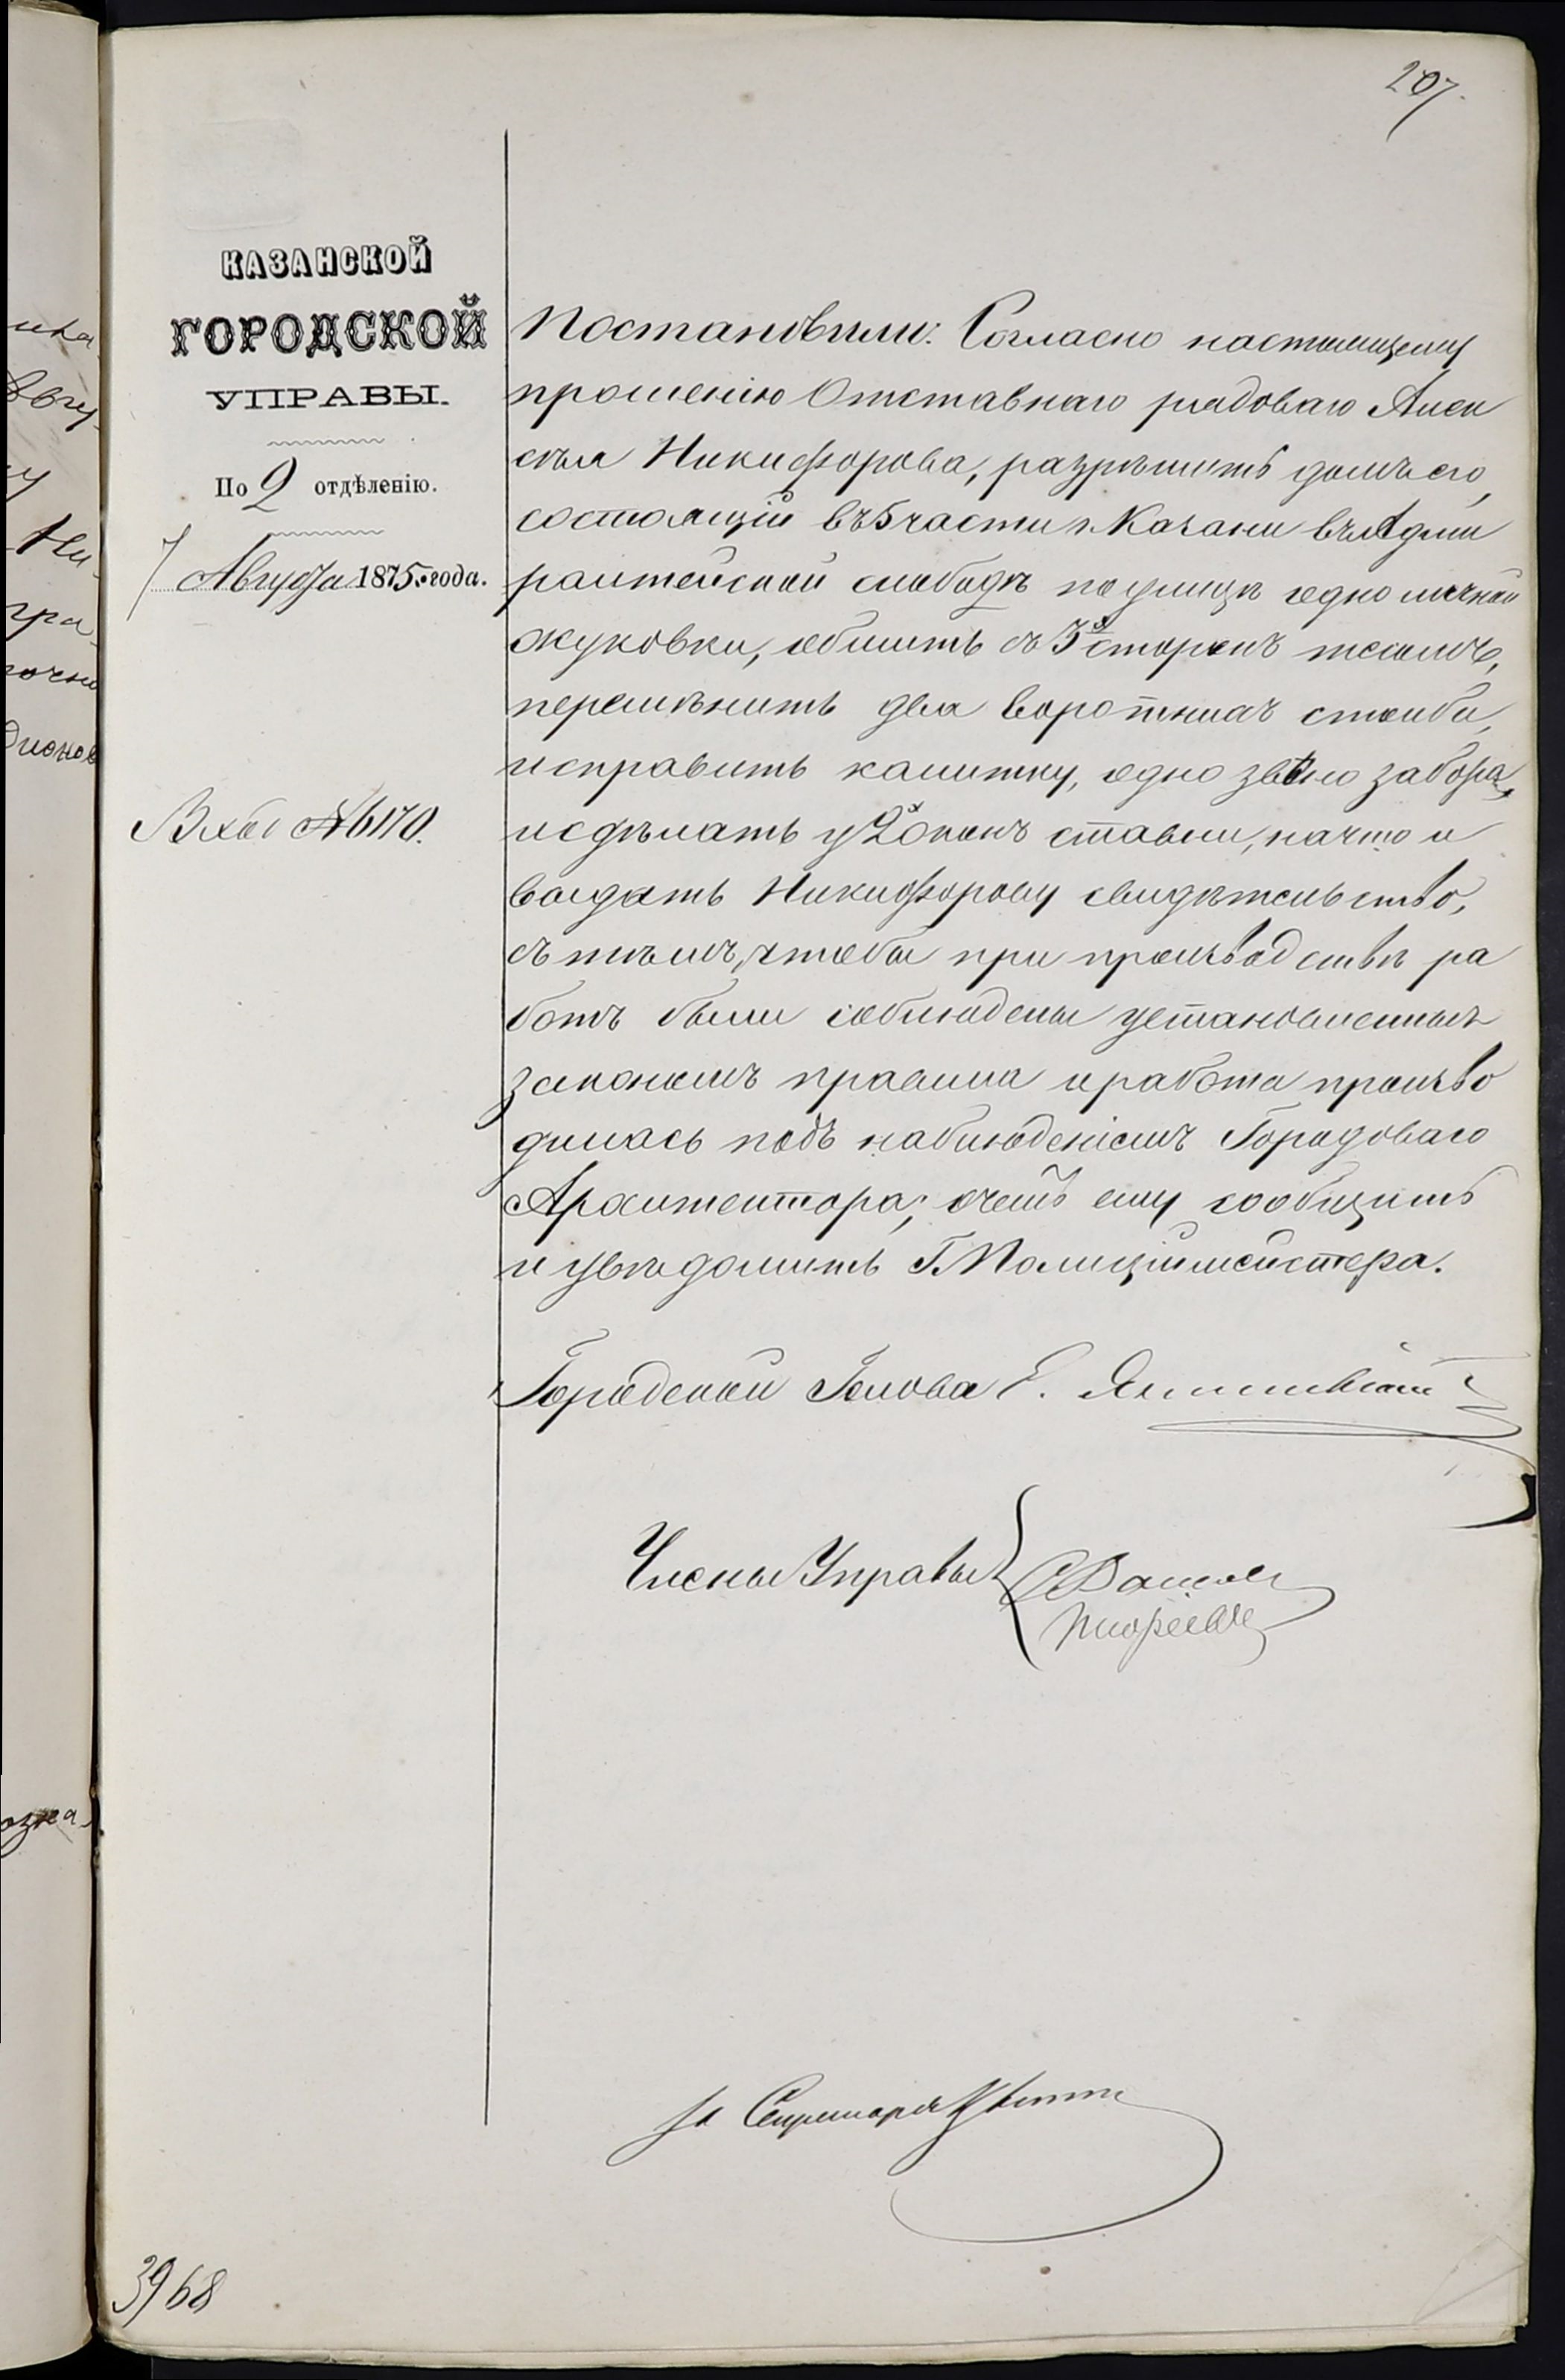 207.
КАЗАНСКОЙ
ГОРОДСКОЙ
УПРАВЫ.
По 2 отдѣленію.
7 Августа 1875 года.
Вход №6170.
Постановили: Согласно настоящему
прошенію Отставнаго рядоваго Алек
сѣя Никифорова, разрѣшить домъ его,
состоящій въ 5 части г. Казани въ Адми
ралтейской слободѣ по улицѣ однолични
жуковки, обшить съ 3х сторонъ тесомъ,
перемѣнить два воротныхъ столба,
исправить калитку, одно звѣно забора,
и сдѣлать у 2х оконъ ставни, на что и
выдать Никифорову свидѣтельство,
съ тѣмъ, чтобы при производствѣ ра
ботъ были соблюдены установленныя
закономъ правила и работа произво
дилась подъ наблюденіемъ Городоваго
Архитектора; о чемъ ему сообщить
и увѣдомить Г. Полиціймейстера.
Городской Голова Е.
Члены Управы
За Секретаря
3968
ика
Авгу
у
Ни
гра
очно
дионов
озна